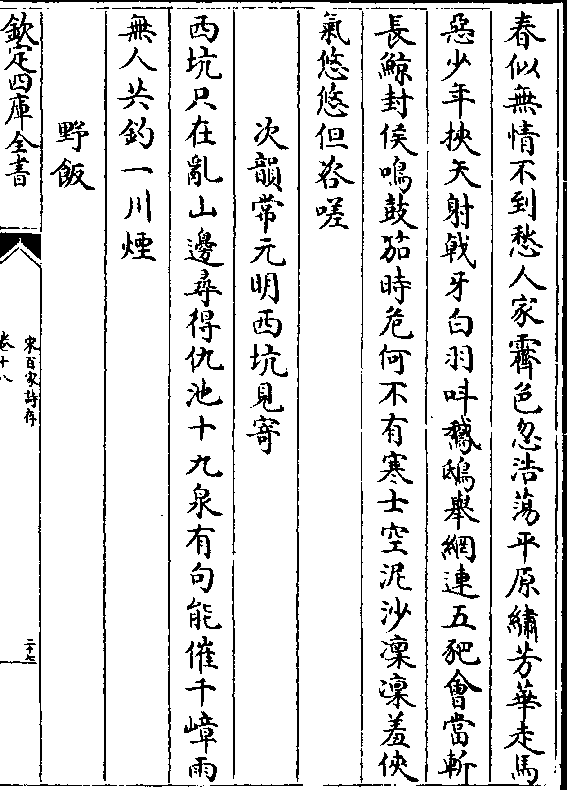 春似無情不到愁人家霽色忽浩蕩平原繡芳華走馬
惡少年挾矢射戟牙白羽呌鵝鴟舉網連五豝會當斬
長鯨封侯鳴鼓笳時危何不有寒士空泥沙凜凜羞俠
氣悠悠但咨嗟
次韻常元明西坑見寄
西坑只在亂山邊尋得仇池十九泉有句能催千嶂雨
無人共釣一川煙
野飯
欽定四庫全書
宋百家詩存
卷十八
二十七